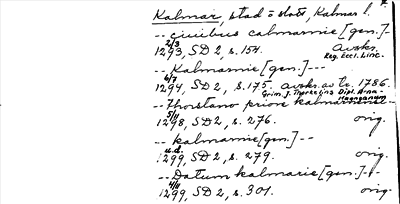 Kalmar, stad o. slott, Kalmar l.
-- ciuibus calmarnie [gen.] -
2/3
1293, SD 2, s. 154. avskr.
Reg. Eccl. Linc.
-- Kalmarnie [gen.] ---
6/7
1294, SD 2, s. 175, avskr. av bc. 1786.
Grim. J. Thorkelins Dipl. Arna-Magnæanum
-- Thorstano priore kalmarnensi --
5/11
1298, SD 2, s. 276. orig.
-- kalmarnie [gen.] --
u.d.
1299, SD 2, s. 279. orig.
-- Datum kalmarie [gen.] --
4/11
1299, SD 2, s. 301. orig.